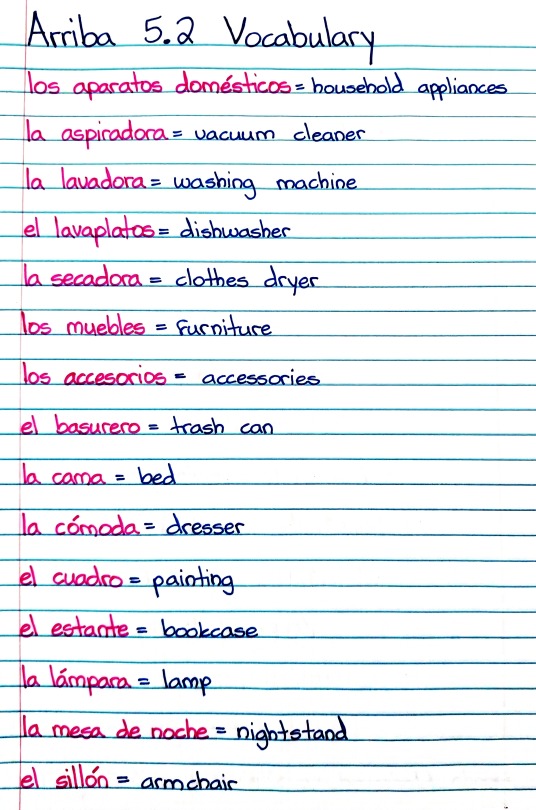 Arriba 5.2 Vocabulary
los aparatos domésticos = household appliances
la aspiradora = vacuum cleaner
la lavadora = washing machine
el lavaplatos = dishwasher
la secadora = clothes dryer
los muebles = furniture
los accesorios = accessories
el basurero = trash can
la cama = bed
la cómoda = dresser
el cuadro = painting
el estante = bookcase
la lámpara = lamp
la mesa de noche = nightstand
el sillón = armchair